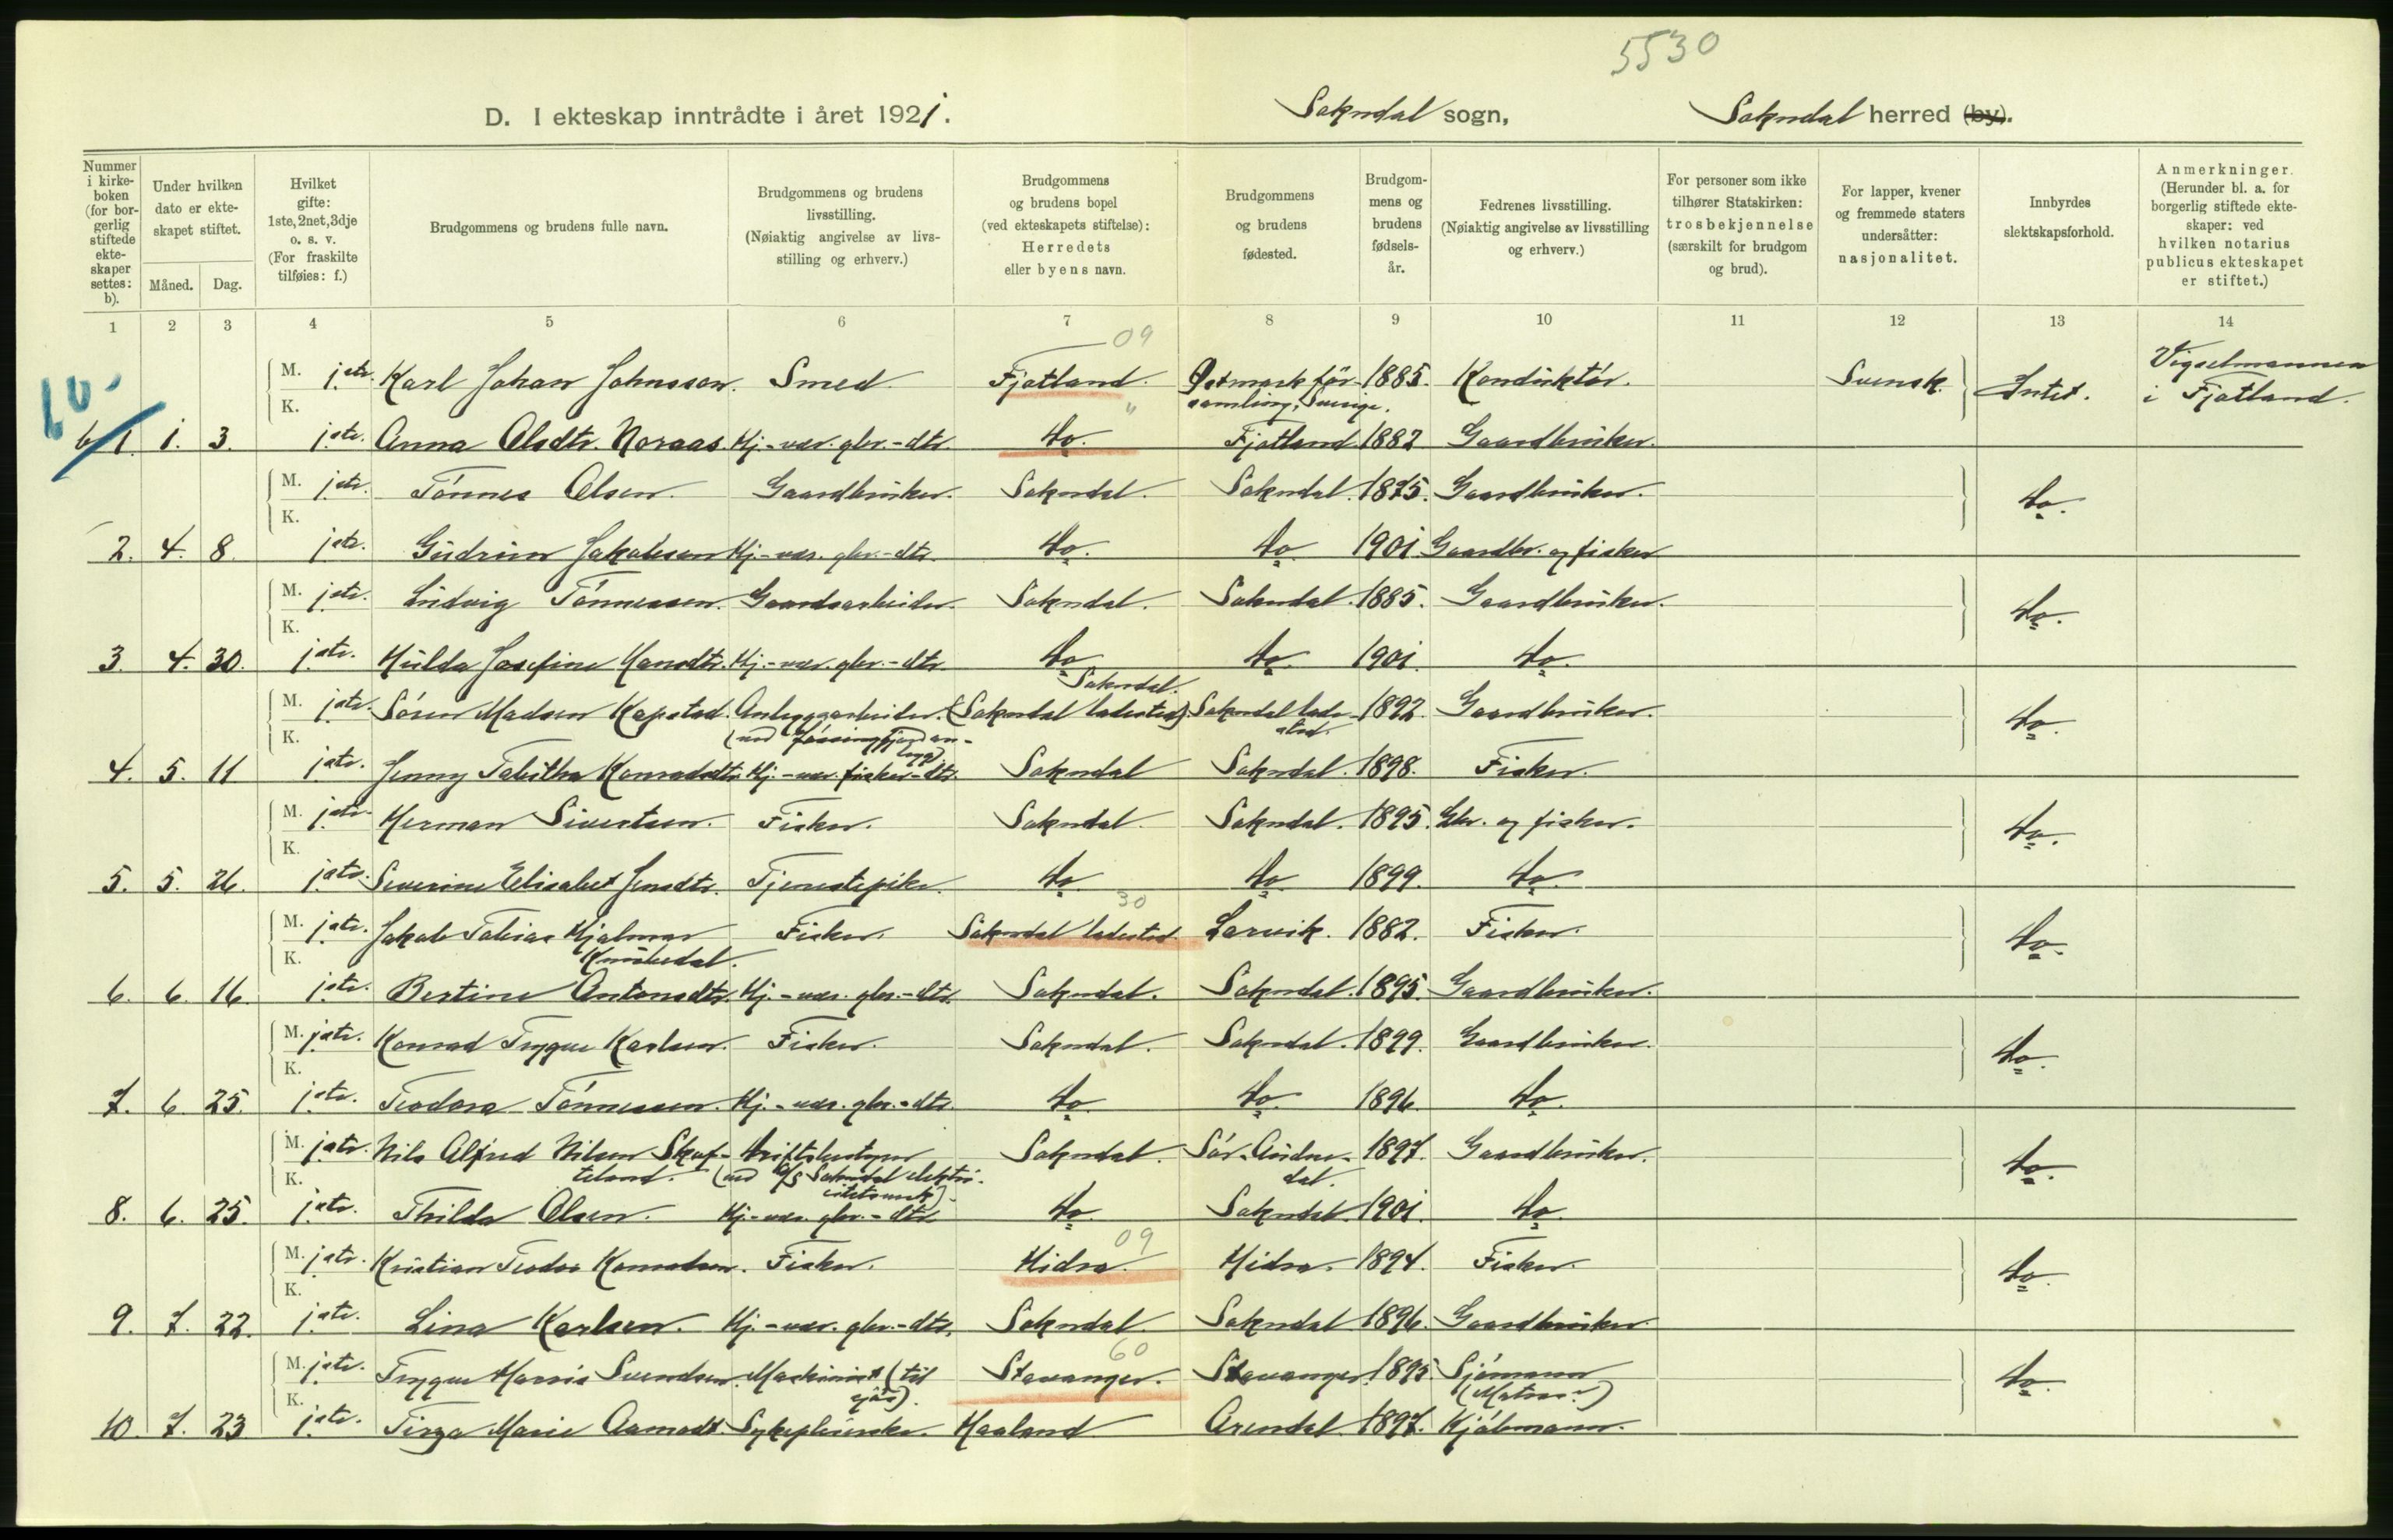 5530
D. I ekteskap inntrådte i året 1921. Sokndal sogn, Sokndal herred (by).
Nummer i kirke-boken (for bor-gerlig stiftede ekte-skaper settes: b).
Under hvilken dato er ekte-skapet stiftet.
Måned. Dag.
Hvilket gifte: 1ste, 2net, 3dje o. s. v. (For fraskilte tilføies: f.)
Brudgommens og brudens fulle navn.
Brudgommens og brudens livsstilling. (Nøiaktig angivelse av livs-stilling og erhverv.)
Brudgommens og brudens bopel (ved ekteskapets stiftelse): Herredets eller byens navn.
Brudgommens og brudens fødested.
Brudgom-mens og brudens fødsels-år.
Fedrenes livsstilling. (Nøiaktig angivelse av livsstilling og erhverv.)
For personer som ikke tilhører Statskirken: trosbekjennelse (særskilt for brudgom og brud).
For lapper, kvener og fremmede staters undersåtter: nasjonalitet.
Innbyrdes slektskapsforhold.
Anmerkninger. (Herunder bl. a. for borgerlig stiftede ekte-skaper: ved hvilken notarius publicus ekteskapet er stiftet.)
1 2 3 4 5 6 7 8 9 10 11 12 13 14
10. 09
M. 1ste. Karl Johan Johnsson. Smed. Fjotland. Østmark för-samling, Sverige. 1885. Konduktör. Svensk. Intet. Vigselmannen i Fjotland.
K.
b/1. 1. 3. 1ste. Anna Olsdtr. Noraas. Hj.-vær. gbr.-dtr. do. Fjotland. 1882 Gaardbruker.
M. 1ste. Tönnes Olsen. Gaardbruker. Sokndal. Sokndal. 1875. Gaardbruker. do.
K.
2. 4. 8. 1ste. Gudrun Jakobsen Hj.-vær. gbr.-dtr. do. do. 1901 Gaardbr. og fisker
M. 1ste. Ludvig Tönnessen. Gaardsarbeider. Sokndal. Sokndal. 1885. Gaardbruker. do.
K.
3. 4. 30. 1ste. Hulda Josefine Hansdtr. Hj.-vær. gbr.-dtr. do. do. 1901. do.
M. 1ste. Sören Madsen Kapstad. Anleggsarbeider. Sokndal. (Sokndal ladested). Sokndal lade-sted. 1892. Gaardbruker. do.
K.
4. 5. 11 1ste. Jenny Tabitha Konradsdtr. Hj.-vær. fisker-dtr. Sokndal Sokndal. 1898. Fisker.
M. 1ste. Herman Sivertsen. Fisker. Sokndal. Sokndal. 1895. Gbr. og fisker. do.
K.
5. 5. 26. 1ste. Severine Elisabet Jensdtr. Tjenestepike. do. do. 1899. do.
30
M. 1ste. Jakob Tobias Hjalmar Fisker. Sokndal ladested. Larvik. 1882. Fisker. do.
K.
6. 6. 16. 1ste. Bertine Antonsdtr. Hj.-vær. gbr.-dtr. Sokndal. Sokndal. 1895. Gaardbruker.
M. 1ste. Konrad Trygve Karlsen. Fisker. Sokndal. Sokndal. 1899. Gaardbruker. do.
K.
7. 6. 25. 1ste. Teodora Tönnessen. Hj.-vær. gbr.-dtr. do. do. 1896. do.
M. 1ste. Nils Alfred Nilsen Skof-teland. Driftsbestyrer (ved A/S Sokndal elektri-citetsverk). Sokndal. Sör-Audne-dal. 1897. Gaardbruker. do.
K.
8. 6. 25. 1ste. Thilda Olsen. Hj.-vær. gbr.-dtr. do. Sokndal. 1901. do.
09
M. 1ste. Kristian Teodor Konradsen. Fisker. Hidra. Hidra. 1894. Fisker. do.
K.
9. 7. 22. 1ste. Lina Karlsen. Hj.-vær. gbr.-dtr. Sokndal. Sokndal 1896. Gaardbruker.
60
M. 1ste. Trygve Marsis Svendsen. Maskinist (til sjös). Stavanger. Stavanger. 1895. Sjömann (Matros) do.
K.
10. 7. 23 1ste. Tirza Marie Aamodt. Sykepleierske. Haaland Arendal. 1897. Kjöbmann.